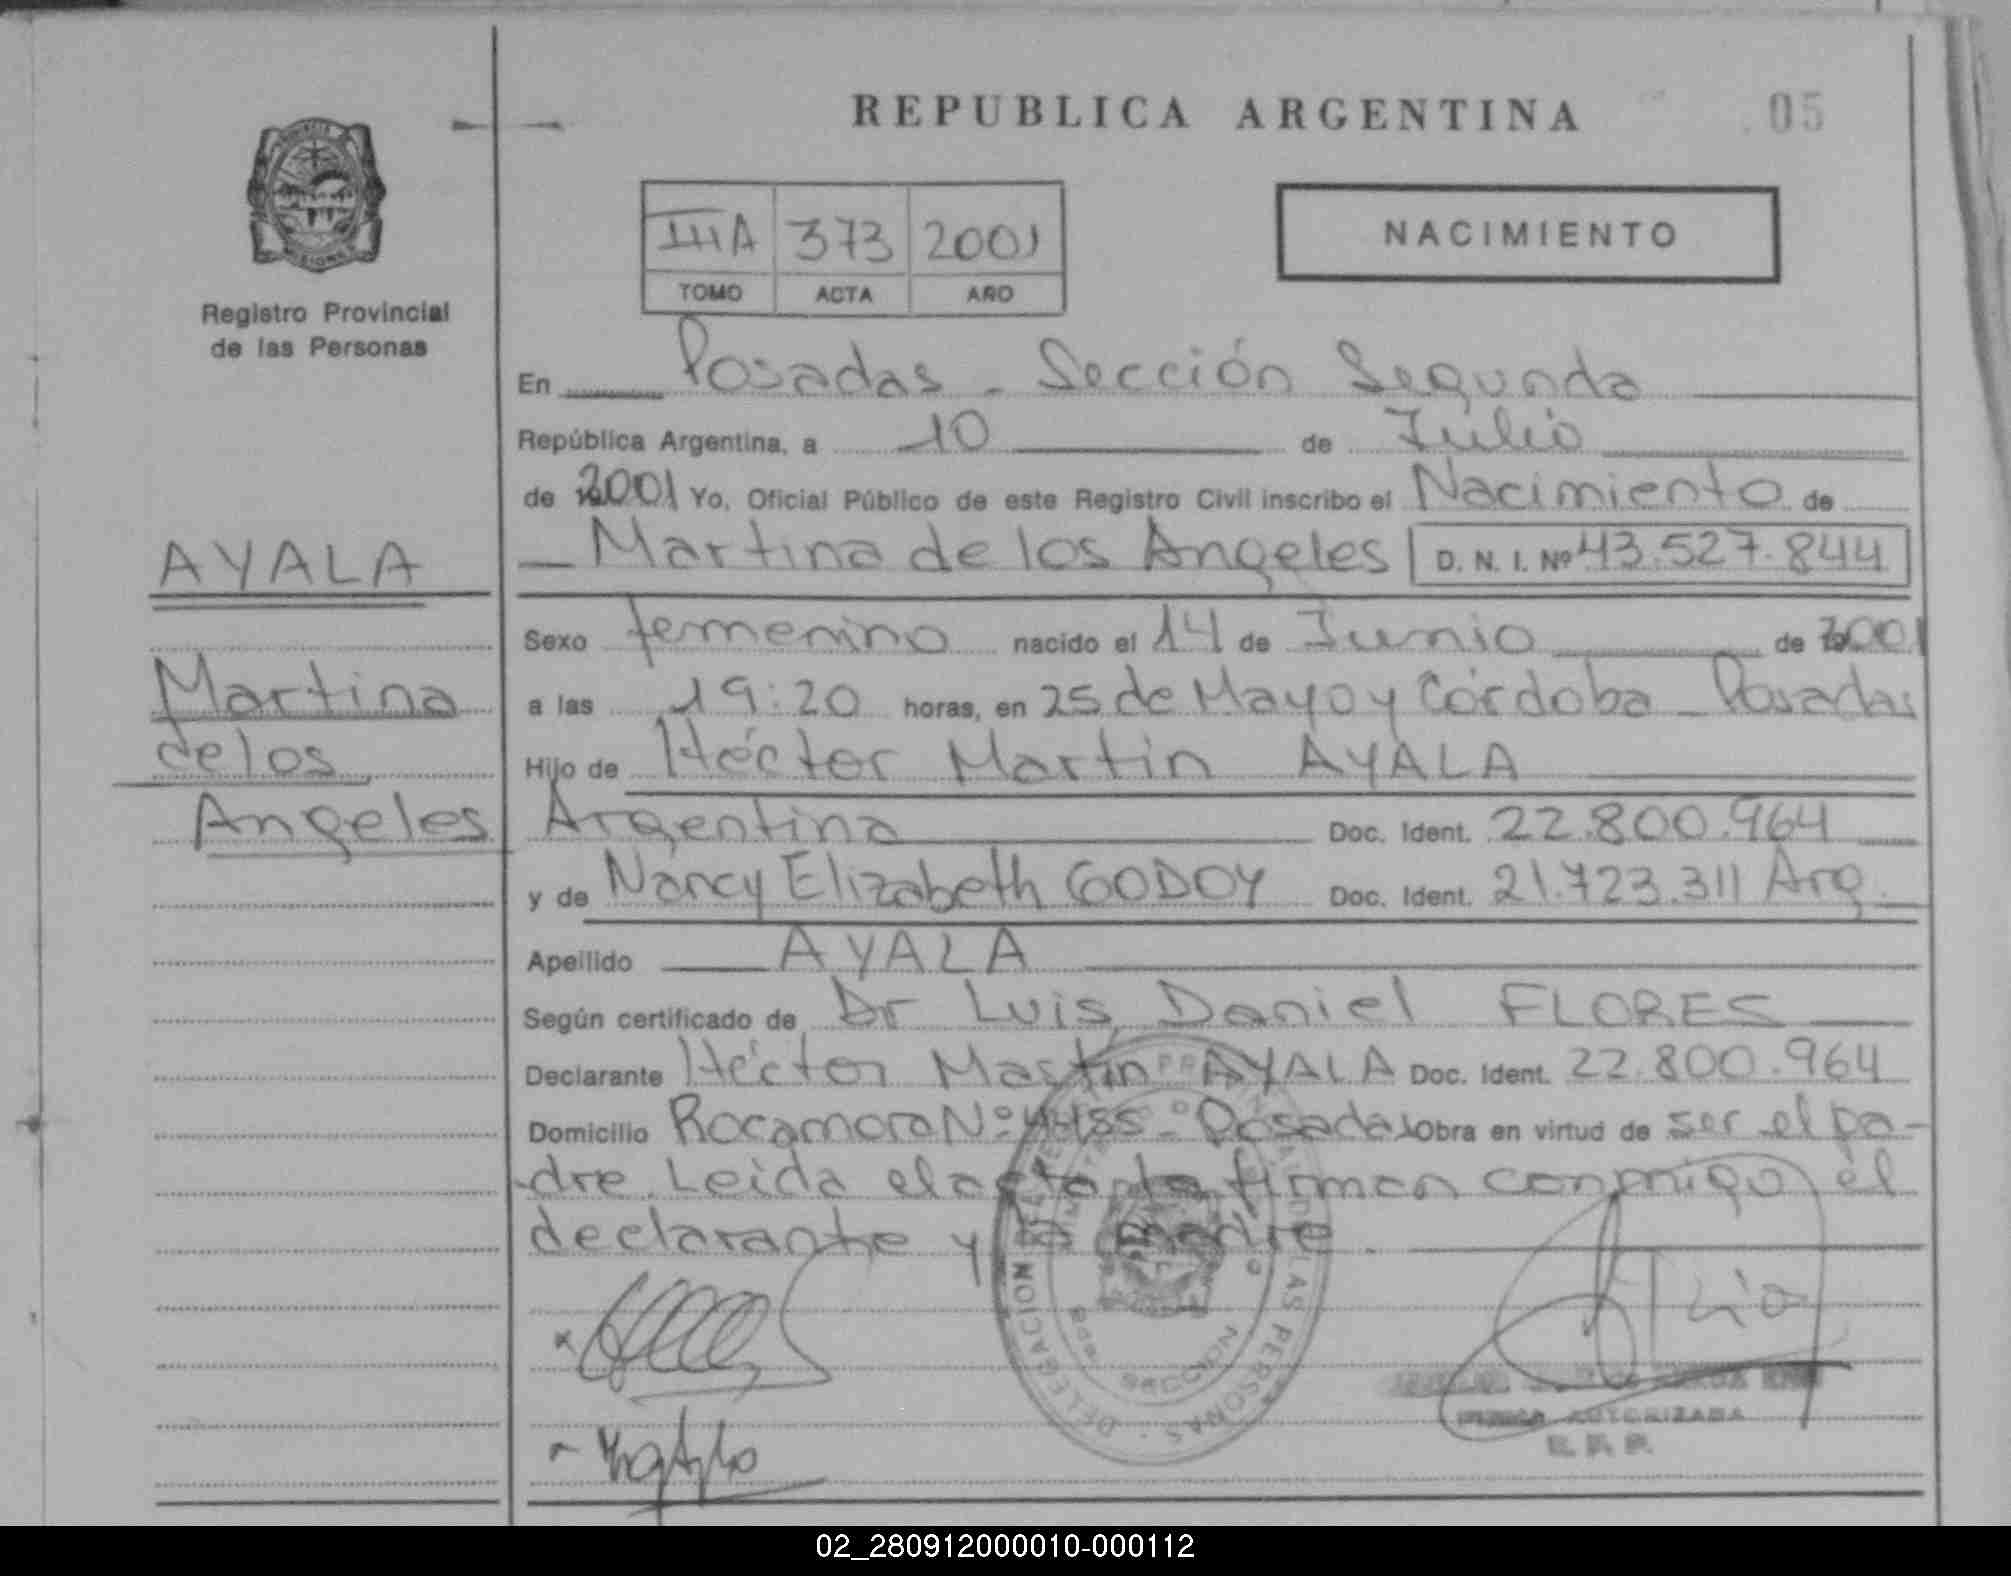 REPUBLICA ARGENTINA
05
IIIA 373 2001
TOMO ACTA AÑO
NACIMIENTO
Registro Provincial
de las Personas
En Posadas - Sección Segunda
República Argentina, a 10 de Julio
de 2001 Yo, Oficial Público de este Registro Civil inscribo el Nacimiento de
Martina de los Angeles D. N. I. Nº 43.527.844
AYALA
Martina
de los
Angeles
Sexo femenino nacido el 14 de Junio de 2001
a las 19:20 horas, en 25 de Mayo y Córdoba - Posadas
Hijo de Héctor Martín AYALA
Argentina Doc. Ident. 22.800.964
y de Nancy Elizabeth GODOY Doc. Ident. 21.723.311 Arg.
Apellido AYALA
Según certificado de Dr Luis Daniel FLORES
Declarante Héctor Martín AYALA Doc. Ident. 22.800.964
Domicilio Rocamora Nº 4455 - Posadas Obra en virtud de ser el pa-
dre. Leida el acta la firman conmigo el
declarante y la madre.
DELEGACION LAS PERSONAS
SECCION
FIRMA AUTORIZADA
R. P. P.
02_280912000010-000112